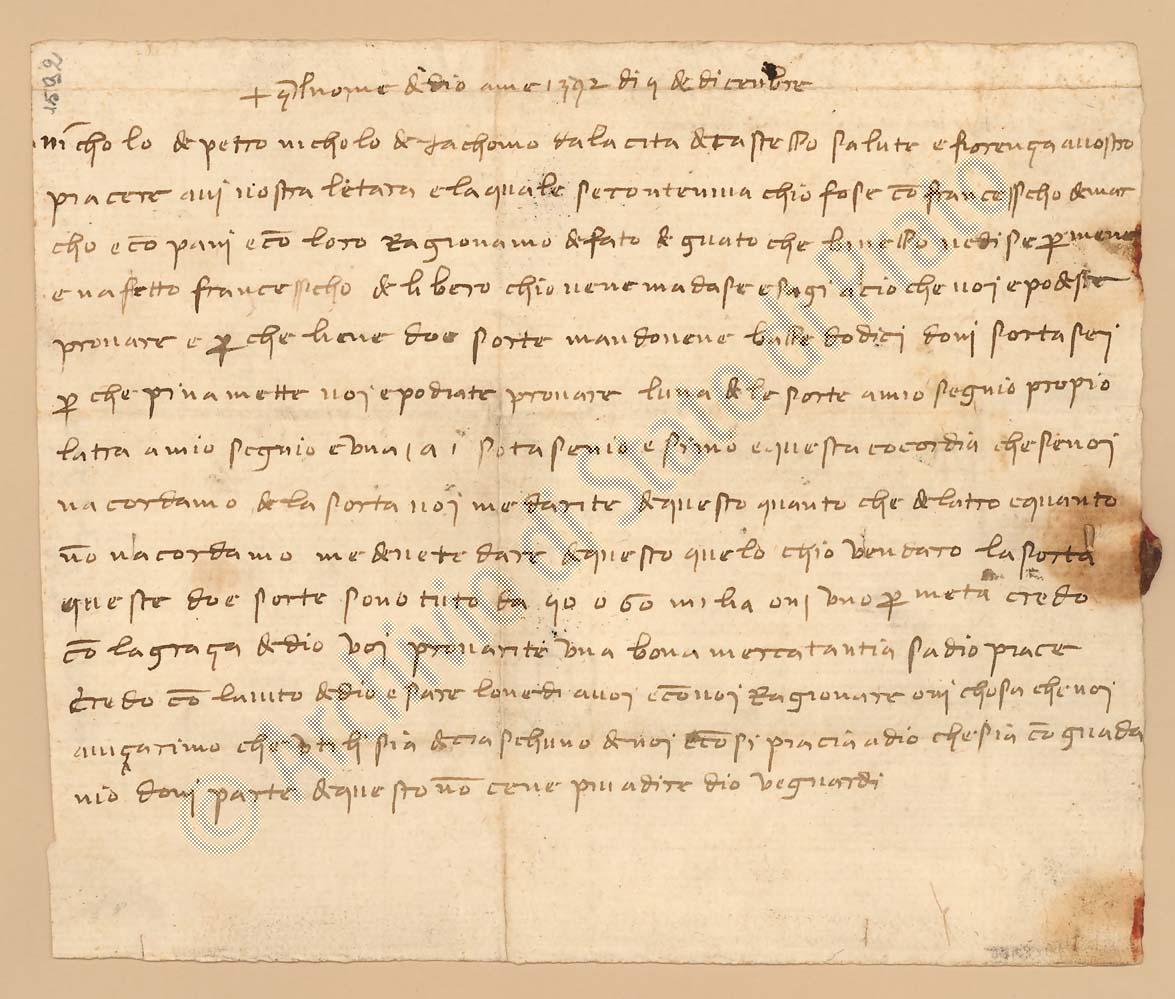 1592
+ al nome de dio ame 1392 di 9 de dicenbre
nicholo de petro nicholo de Jachomo dala cita de Castello salute e fiorença a vostro
piacere avi vostra letara e la quale se contenniva chio fose cō francesscho de mar
cho e cōpani e cō loro Ragionamo de fato de guato che
e va fetto francesscho delibero chio vene madase e sagi acio che voi e podeste
provare e p che lieve doe sorte mandovene balle dodici dovi sorta sei
p che pinamette voi e podiate provare luna dele sorte a mio segnio propio
latra a mio segnio e una sota segnio e simo e questa cocordia che se voi
va cordamo dela sorta voi me darite de questo quanto che de latro e quanto
nō va cordamo me devete dare de questo quelo chio vendaro la sorta
queste doe sorte sono tuto da 40 o 60 miglia ovi uno p meta credo
cō la graça de dio voi provarite una bona mercatantia sa dio piace
Credo cō laiuto de dio e sare lonedi a voi e cō voi Ragionare ovi chosa che voi
auiçarimo che utili sia de ciaschuno de noi e cosi piacia a dio che sia cō guada
nio dovi parte de questo nō cene piu a dire dio ve guardi
© Archivio di Stato di Prato